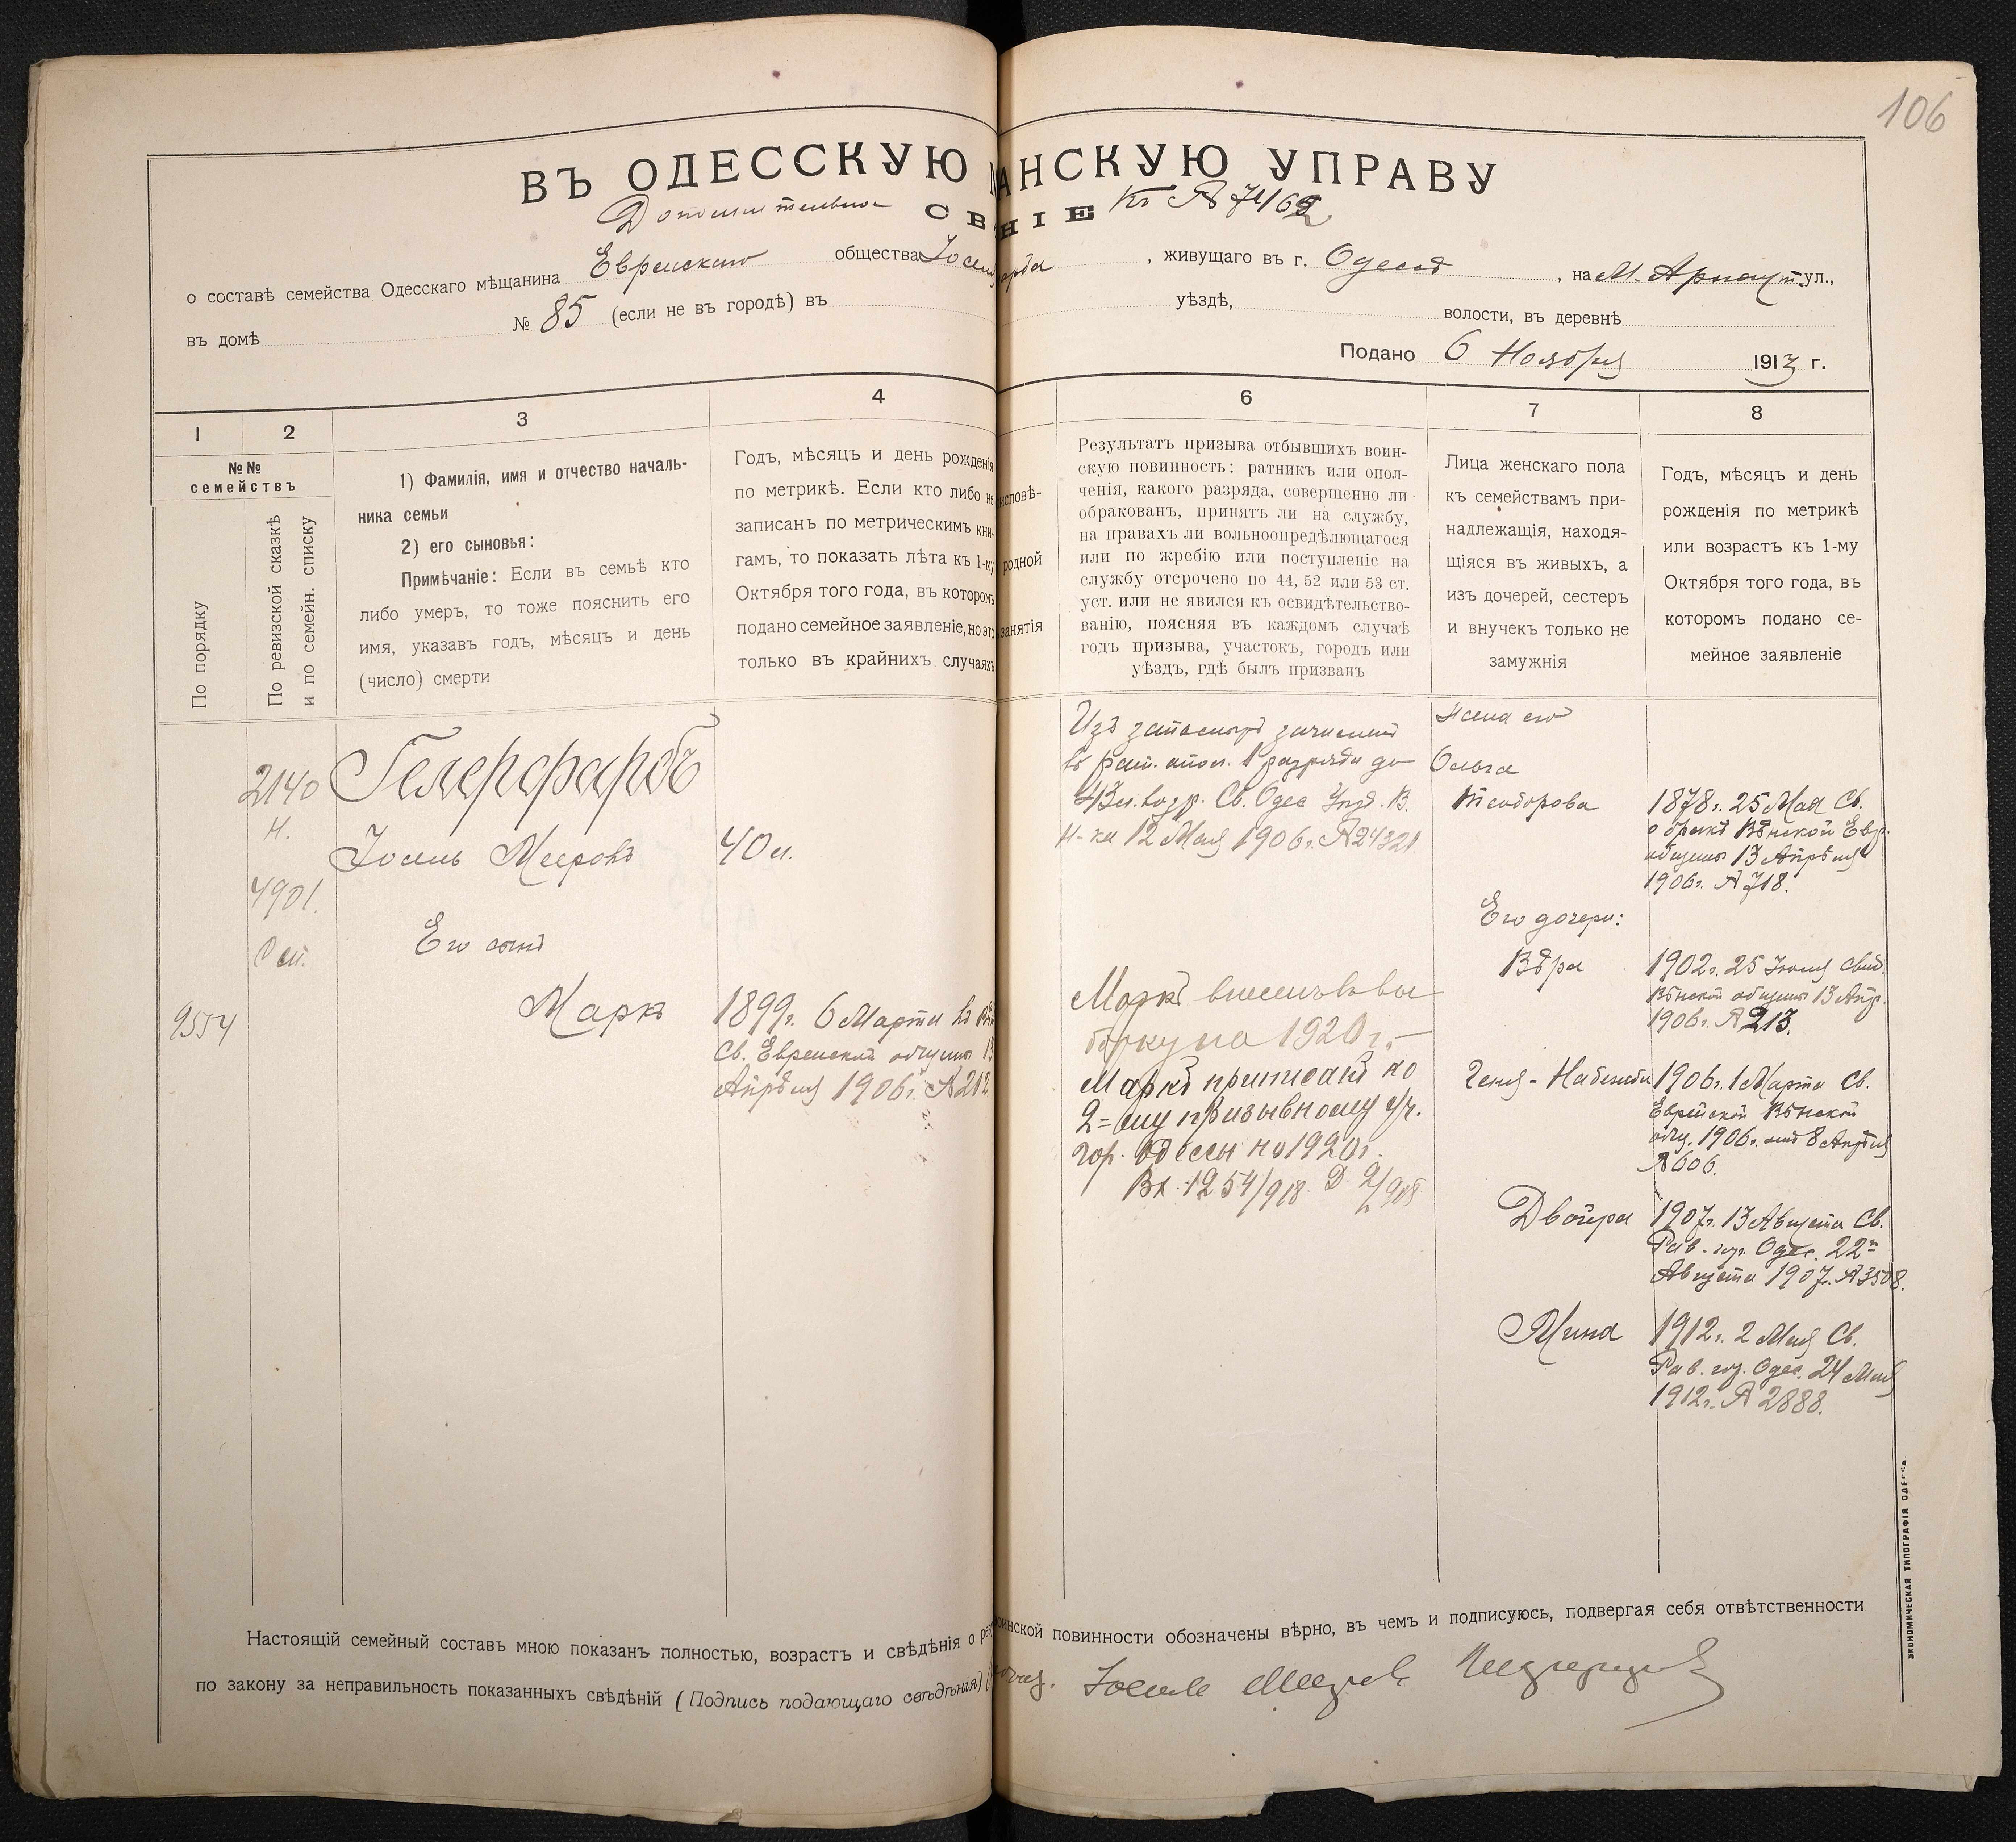 106
ВЪ ОДЕССКУЮ АНСКУЮ УПРАВУ
Дополнительное СВ НІЕ Къ № 7462
о составѣ семейства Одесскаго мѣщанина Еврейскаго общества Іосел арба, живущаго въ г. Одессѣ, на М. Арнаут. ул.,
въ домѣ № 85 (если не въ городѣ) въ уѣздѣ, волости, въ деревнѣ
Подано 6 Ноября 1913 г.
1 2 3 4 6 7 8
№№ семействъ
По порядку
По ревизской сказкѣ
и по семейн. списку
1) Фамилія, имя и отчество началь-
ника семьи
2) его сыновья:
Примѣчаніе: Если въ семьѣ кто
либо умеръ, то тоже пояснить его
имя, указавъ годъ, мѣсяцъ и день
(число) смерти
Годъ, мѣсяцъ и день рожденія
по метрикѣ. Если кто либо не
записанъ по метрическимъ кни-
гамъ, то показать лѣта къ 1-му
Октября того года, въ которомъ
подано семейное заявленіе, но это
только въ крайнихъ случаяхъ
исповѣ-
родной
занятія
Результатъ призыва отбывшихъ воин-
скую повинность: ратникъ или опол-
ченія, какого разряда, совершенно ли
обракованъ, принятъ ли на службу,
на правахъ ли вольноопредѣляющагося
или по жребію или поступленіе на
службу отсрочено по 44, 52 или 53 ст.
уст. или не явился къ освидѣтельство-
ванію, поясняя въ каждомъ случаѣ
годъ призыва, участокъ, городъ или
уѣздъ, гдѣ былъ призванъ
Лица женскаго пола
къ семействамъ при-
надлежащія, находя-
щіяся въ живыхъ, а
изъ дочерей, сестеръ
и внучекъ только не
замужнія
Годъ, мѣсяцъ и день
рожденія по метрикѣ
или возрастъ къ 1-му
Октября того года, въ
которомъ подано се-
мейное заявленіе
2140
н.
4901.
9554
Гелерфарбъ
Іосель Мееровъ
40 л.
Его сынъ
Марк
1899 г. 6 Марта въ
Св. Еврейской общины 13
Апрѣля 1906 г. № 212.
Изъ запасныхъ зачисленъ
въ рат. опол. 1 разряда до
43 л. возр. Св. Одес Уѣзд. В.
Н-ка 12 Мая 1906 г. № 24321
Маркъ
на 1920 г.
Маркъ приписанъ ко
2=ому призывному уч.
гор. Одессы на 1920 г.
Вх. 1254/918.
Жена его
Ольга
Теодорова
1878 г. 25 Мая Св.
о бракѣ Вѣнской Евр.
общины 13 Апрѣля
1906 г. № 718.
Его дочери:
Вѣра
1902 г. 25 Іюля Свид.
Вѣнской общины 13 Апр.
1906 г. № 213.
1906 г. 1 Марта Св.
Еврейской Вѣнской
общ. 1906 г. отъ 8 Апрѣля
№ 606.
Двойра
1907 г. 13 Августа Св.
Рав. гор. Одес. 22го
Августа 1907 г. № 3508.
Мина
1912 г. 2 Мая Св.
Рав. гор. Одес. 24 Мая
1912 г. № 2888.
Настоящій семейный составъ мною показанъ полностью, возрастъ и свѣдѣнія о рез воинской повинности обозначены вѣрно, въ чемъ и подписуюсь, подвергая себя отвѣтственности
по закону за неправильность показанныхъ свѣдѣній (Подпись подающаго свѣдѣнія)
ЭКОНОМИЧЕСКАЯ ТИПОГРАФІЯ ОДЕССА.